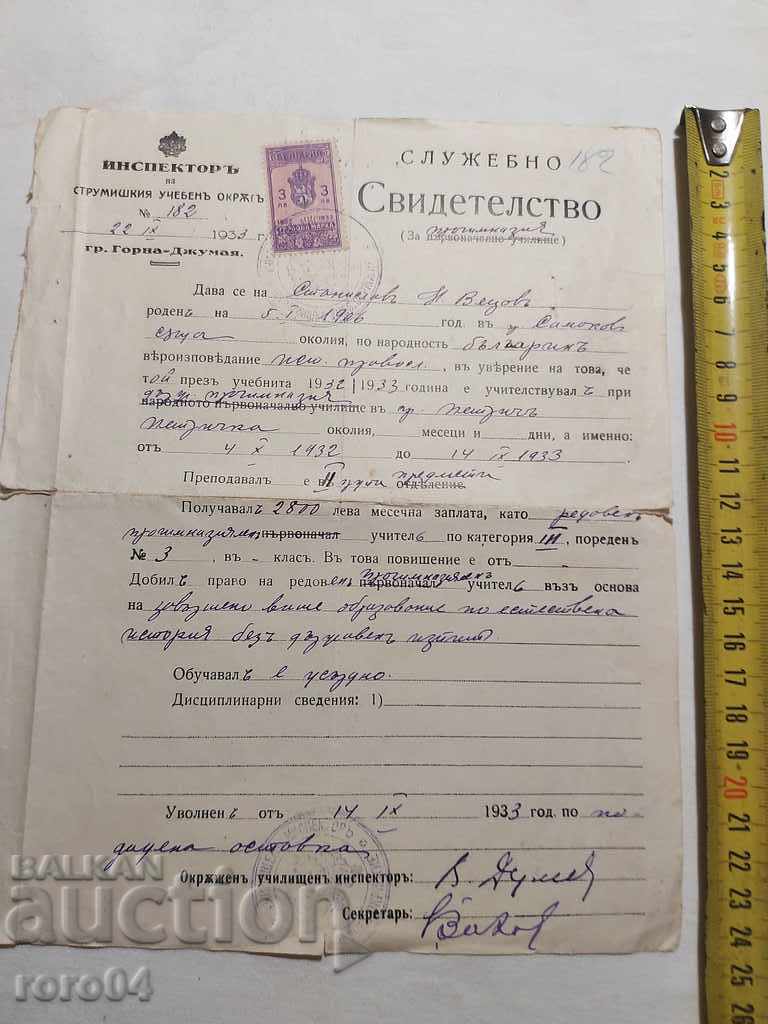 ИНСПЕКТОРЪ
на
СТРУМИШКИЯ УЧЕБЕНЪ ОКРѪГЪ
№ 182
22 IX 1933 г.
гр. Горна-Джумая.
БЪЛГАРИЯ
3 3
ЛВ ЛВ
СЛУЖЕБНО 182
Свидетелство
(За първоначално училище) прогимназия
Дава се на Станиславъ Н. Вецовъ
роденъ на 5. I 1906 год. въ г. Самоковъ
сѫща околия, по народность българинъ
вѣроизповѣдание изт. правосл., въ увѣрение на това, че
той презъ учебната 1932/1933 година е учителствувалъ при
държ. прогимназия
народното първоначално училище въ гр. Петричъ
Петричка околия, месеци и дни, а именно:
отъ 4 X 1932 до 14 IX 1933.
Преподавалъ е въ II група предмети отдѣление.
Получавалъ 2800 лева месечна заплата, като редовенъ
прогимназияленъ първоначал учитель по категория III, пореденъ
№ 3, въ - класъ. Въ това повишение е отъ
Добилъ право на редовенъ прогимназияленъ първоначал учитель възъ основа
на завършено висше образование по естествена
история безъ държавенъ изпитъ.
Обучавалъ е усърдно.
Дисциплинарни сведения: 1)
Уволненъ отъ 14 IX 1933 год. по по-
дадена оставка
Окрѫженъ училищенъ инспекторъ:
Секретарь:
BALKAN
auction
roro04
2 3 4 5 6 7 8 9 10 11 12 13 14 15 16 17 18 19 20 21 22 23 24 25 26